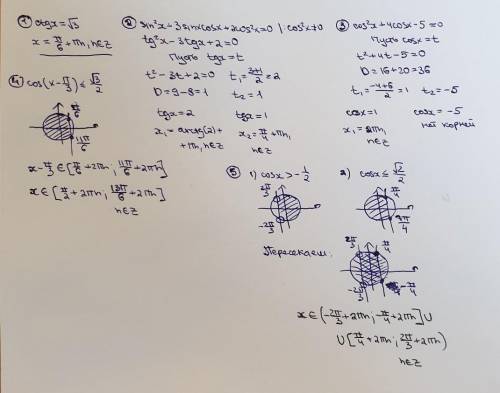 ① ctgx = √3
x = π/6 + πn, n∈Z
② sin²x + 3sinxcosx + 2cos²x = 0 | : cos²x ≠ 0
tg²x - 3tgx + 2 = 0
Пусть tgx = t
t² - 3t + 2 = 0
D = 9 - 8 = 1
t₁ = (3+1)/2 = 2
t₂ = 1
tgx = 2
x₁ = arctg(2) +
+ πn, n∈Z
tgx = 1
x₂ = π/4 + πn,
n∈Z
③ cos²x + 4cosx - 5 = 0
Пусть cosx = t
t² + 4t - 5 = 0
D = 16 + 20 = 36
t₁ = (-4+6)/2 = 1 t₂ = -5
cosx = 1
x₁ = 2πn,
n∈Z
cosx = -5
нет корней
④ cos(x - π/3) ≤ √3/2
π/6
11π/6
x - π/3 ∈ [π/6 + 2πn; 11π/6 + 2πn]
x ∈ [π/2 + 2πn; 13π/6 + 2πn]
n∈Z
⑤ 1) cosx > -1/2
2π/3
-2π/3
2) cosx ≤ √2/2
π/4
π/4
Пересекаем:
2π/3
π/4
-2π/3
-π/4
x ∈ (-2π/3 + 2πn; -π/4 + 2πn] ∪
∪ [π/4 + 2πn; 2π/3 + 2πn)
n∈Z